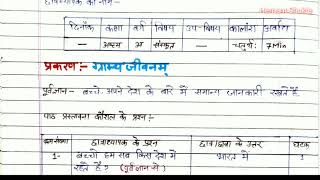 छात्राध्यापक का नाम -
दिनाँक कक्षा वर्ग विषय उप-विषय कालांश अवधि
— अष्टम अ संस्कृत — चतुर्थ: 7 Min
प्रकरण:- ग्राम्य जीवनम्
पूर्वज्ञान - बच्चे अपने देश के बारे में समान्य जानकारी रखते हैं
पाठ प्रस्तावना कौशल के प्रश्न:-
छात्राध्यापक के प्रश्न छात्र/छात्रा के उत्तर घटक
1- बच्चो हम सब किस देश में भारत में 1
रहते हैं? (पूर्वज्ञान से)